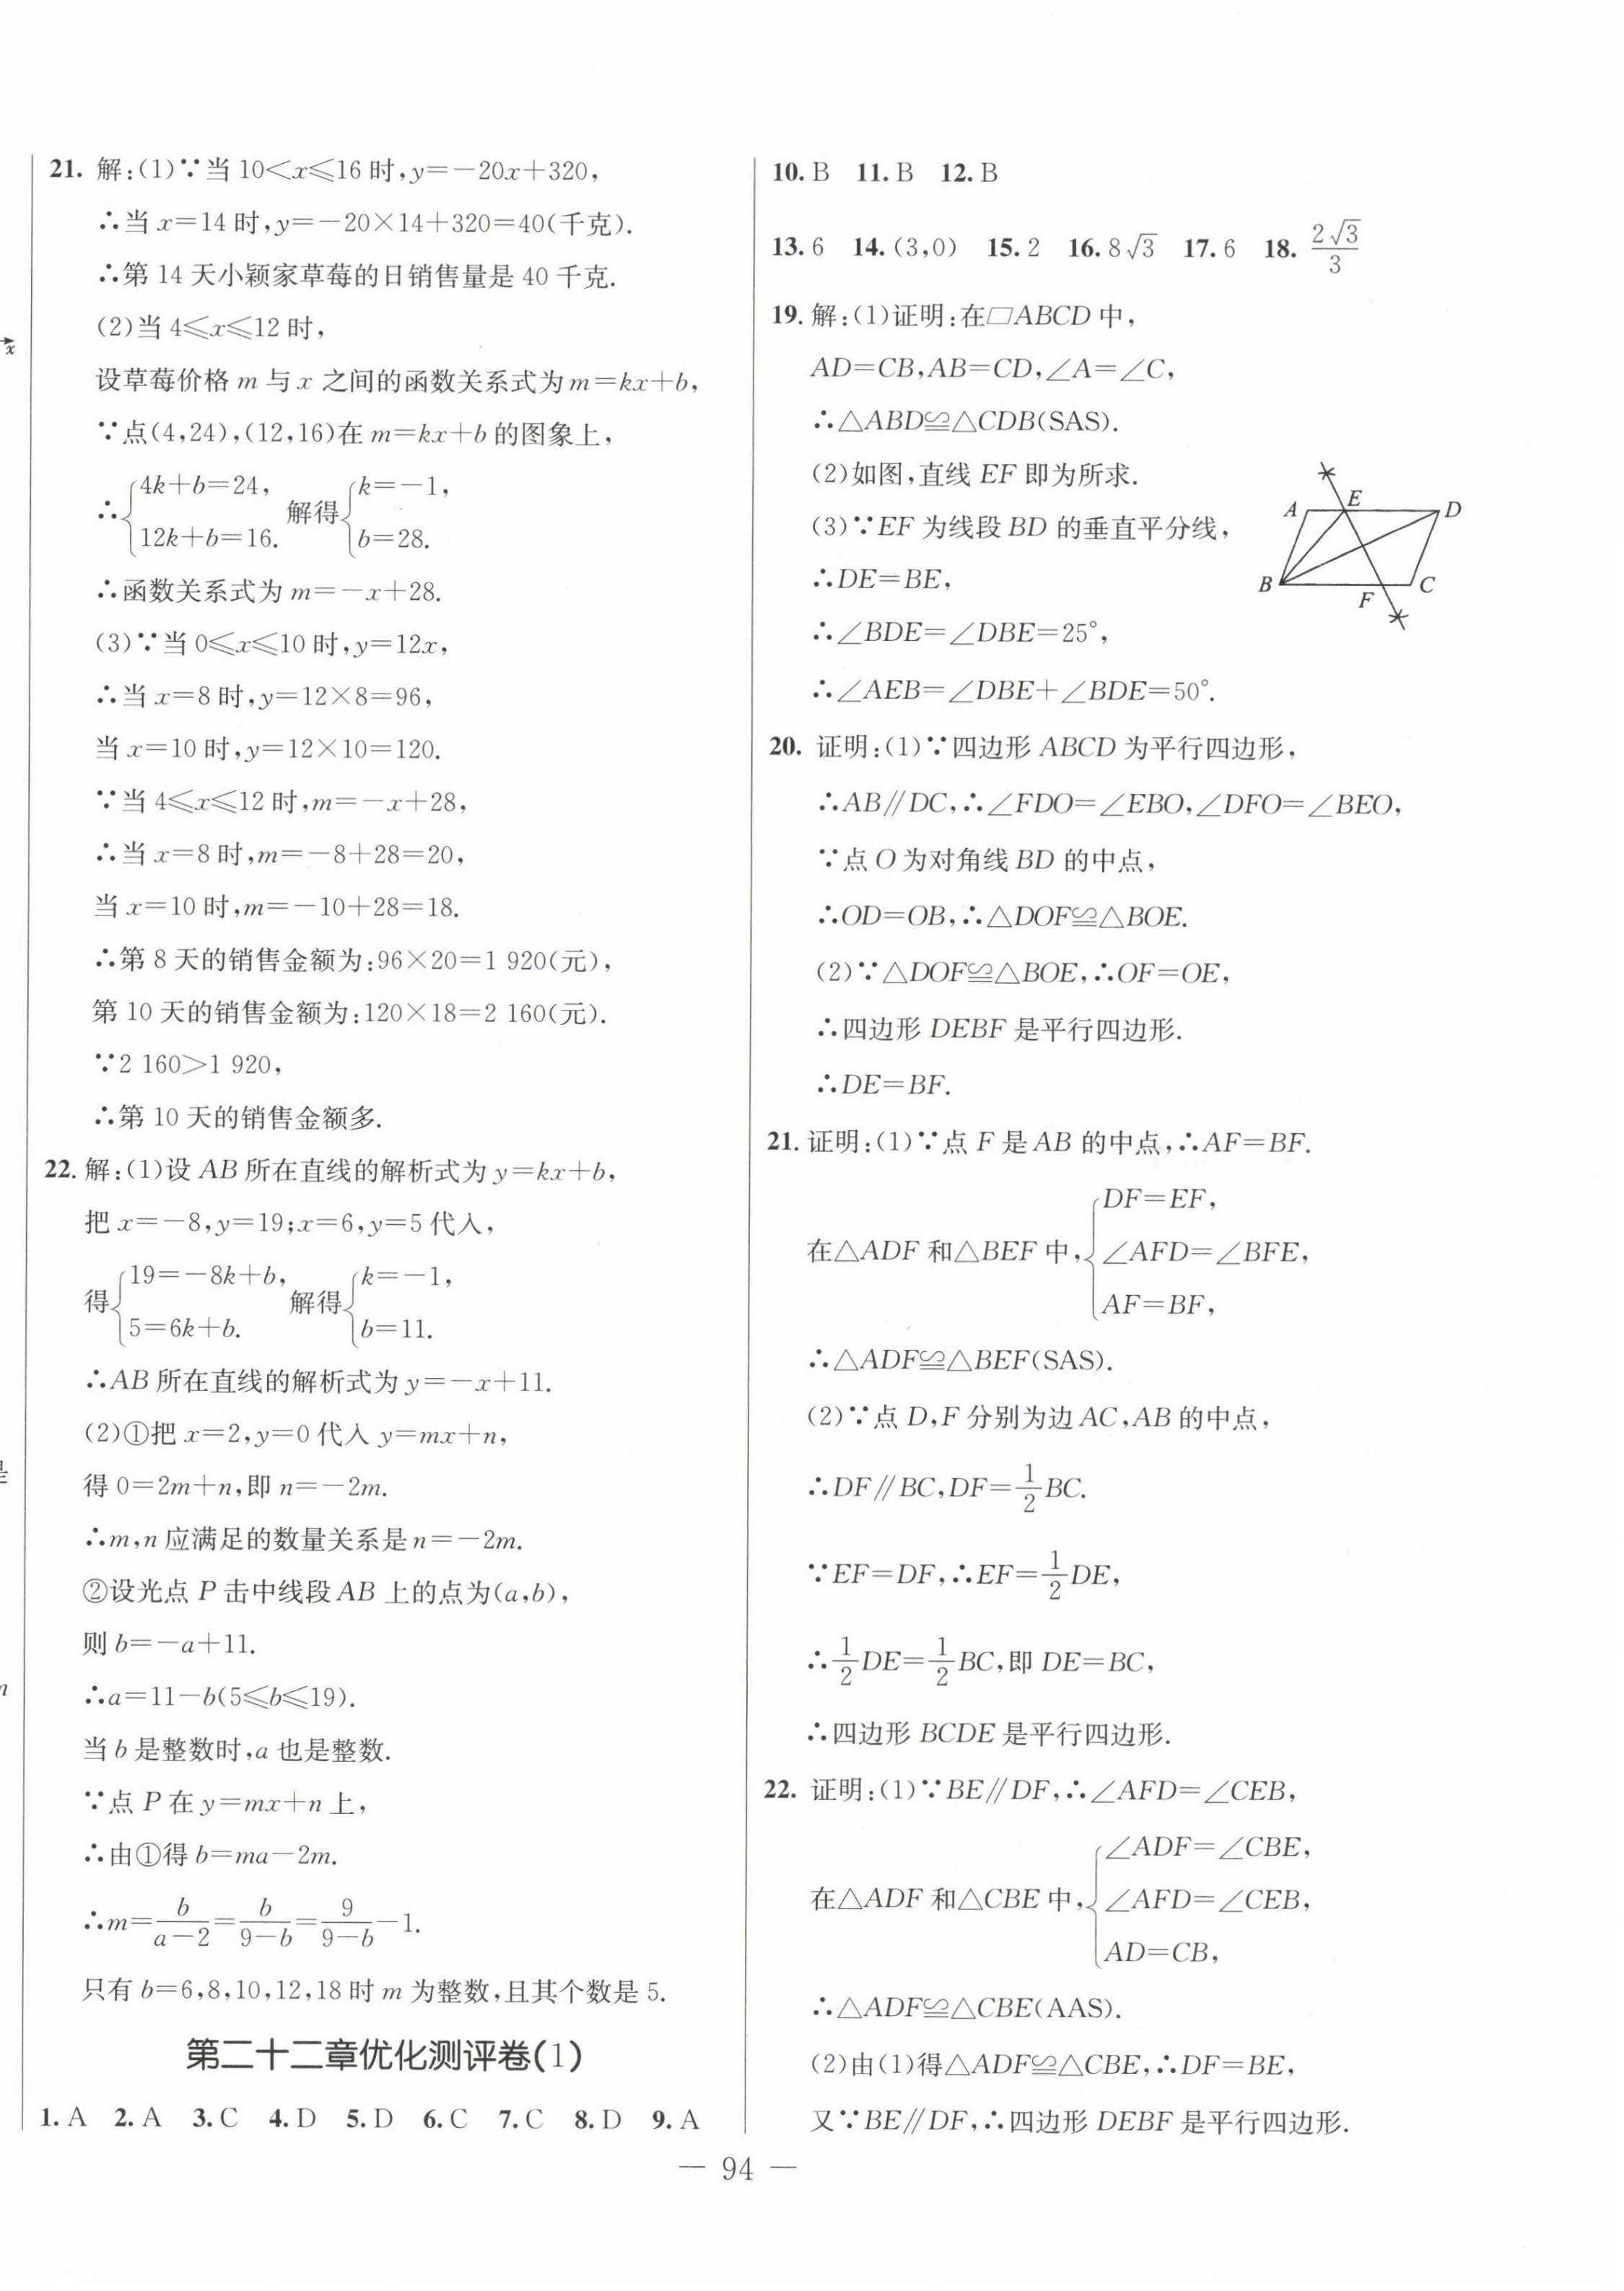 21. 解:(1)∵当 10<x≤16 时,y=-20x+320,
∴当 x=14 时,y=-20×14+320=40(千克).
∴第 14 天小颖家草莓的日销售量是 40 千克.
(2)当 4≤x≤12 时,
设草莓价格 m 与 x 之间的函数关系式为 m=kx+b,
∵点(4,24),(12,16)在 m=kx+b 的图象上,
∴{4k+b=24, 12k+b=16. 解得{k=-1, b=28.
∴函数关系式为 m=-x+28.
(3)∵当 0≤x≤10 时,y=12x,
∴当 x=8 时,y=12×8=96,
当 x=10 时,y=12×10=120.
∵当 4≤x≤12 时,m=-x+28,
∴当 x=8 时,m=-8+28=20,
当 x=10 时,m=-10+28=18.
∴第 8 天的销售金额为:96×20=1 920(元),
第 10 天的销售金额为:120×18=2 160(元).
∵2 160>1 920,
∴第 10 天的销售金额多.
22. 解:(1)设 AB 所在直线的解析式为 y=kx+b,
把 x=-8,y=19;x=6,y=5 代入,
得{19=-8k+b, 5=6k+b. 解得{k=-1, b=11.
∴AB 所在直线的解析式为 y=-x+11.
(2)①把 x=2,y=0 代入 y=mx+n,
得 0=2m+n,即 n=-2m.
∴m,n 应满足的数量关系是 n=-2m.
②设光点 P 击中线段 AB 上的点为(a,b),
则 b=-a+11.
∴a=11-b(5≤b≤19).
当 b 是整数时,a 也是整数.
∵点 P 在 y=mx+n 上,
∴由①得 b=ma-2m.
∴m=b/(a-2)=b/(9-b)=9/(9-b)-1.
只有 b=6,8,10,12,18 时 m 为整数,且其个数是 5.
第二十二章优化测评卷(1)
1. A 2. A 3. C 4. D 5. D 6. C 7. C 8. D 9. A
10. B 11. B 12. B
13. 6 14. (3,0) 15. 2 16. 8√3 17. 6 18. 2√3/3
19. 解:(1)证明:在▱ABCD 中,
AD=CB,AB=CD,∠A=∠C,
∴△ABD≌△CDB(SAS).
(2)如图,直线 EF 即为所求.
(3)∵EF 为线段 BD 的垂直平分线,
∴DE=BE,
∴∠BDE=∠DBE=25°,
∴∠AEB=∠DBE+∠BDE=50°.
A E D
B F C
20. 证明:(1)∵四边形 ABCD 为平行四边形,
∴AB∥DC,∴∠FDO=∠EBO,∠DFO=∠BEO,
∵点 O 为对角线 BD 的中点,
∴OD=OB,∴△DOF≌△BOE.
(2)∵△DOF≌△BOE,∴OF=OE,
∴四边形 DEBF 是平行四边形.
∴DE=BF.
21. 证明:(1)∵点 F 是 AB 的中点,∴AF=BF.
在△ADF 和△BEF 中,{DF=EF, ∠AFD=∠BFE, AF=BF,
∴△ADF≌△BEF(SAS).
(2)∵点 D,F 分别为边 AC,AB 的中点,
∴DF∥BC,DF=1/2BC.
∵EF=DF,∴EF=1/2DE,
∴1/2DE=1/2BC,即 DE=BC,
∴四边形 BCDE 是平行四边形.
22. 证明:(1)∵BE∥DF,∴∠AFD=∠CEB,
在△ADF 和△CBE 中,{∠ADF=∠CBE, ∠AFD=∠CEB, AD=CB,
∴△ADF≌△CBE(AAS).
(2)由(1)得△ADF≌△CBE,∴DF=BE,
又∵BE∥DF,∴四边形 DEBF 是平行四边形.
— 94 —